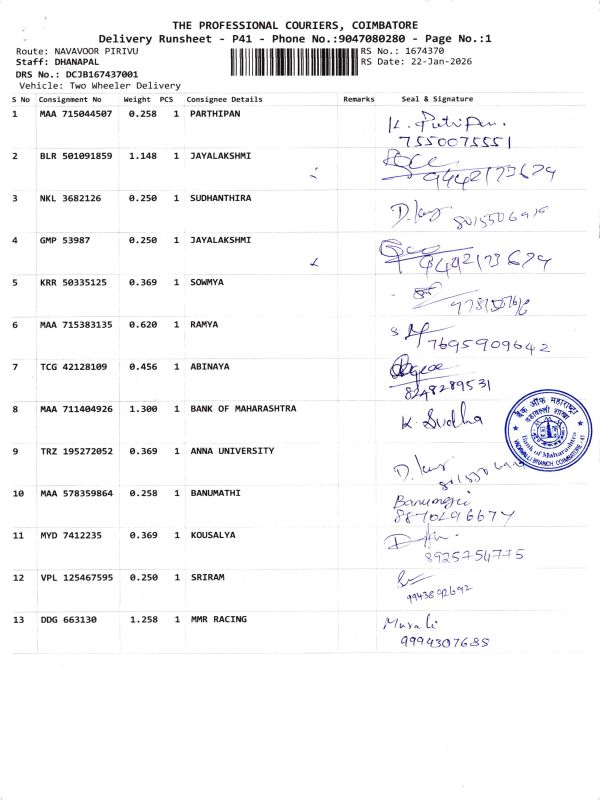 THE PROFESSIONAL COURIERS, COIMBATORE
Delivery Runsheet - P41 - Phone No.:9047080280 - Page No.:1
Route: NAVAVOOR PIRIVU RS No.: 1674370
Staff: DHANAPAL RS Date: 22-Jan-2026
DRS No.: DCJB167437001
Vehicle: Two Wheeler Delivery
S No Consignment No Weight PCS Consignee Details Remarks Seal & Signature
1 MAA 715044507 0.258 1 PARTHIPAN
7550075551
2 BLR 501091859 1.148 1 JAYALAKSHMI
9442173679
3 NKL 3682126 0.250 1 SUDHANTHIRA
4 GMP 53987 0.250 1 JAYALAKSHMI
9442173679
5 KRR 50335125 0.369 1 SOWMYA
6 MAA 715383135 0.620 1 RAMYA
7695909642
7 TCG 42128109 0.456 1 ABINAYA
8248289531
8 MAA 711404926 1.300 1 BANK OF MAHARASHTRA K. Sudha
बैंक ऑफ महाराष्ट्र
Bank of Maharashtra
VADAVALLI BRANCH, COIMBATORE - 41
9 TRZ 195272052 0.369 1 ANNA UNIVERSITY
10 MAA 578359864 0.258 1 BANUMATHI
8870296674
11 MYD 7412235 0.369 1 KOUSALYA
8925754775
12 VPL 125467595 0.250 1 SRIRAM
9943892692
13 DDG 663130 1.258 1 MMR RACING Murali
9994307685